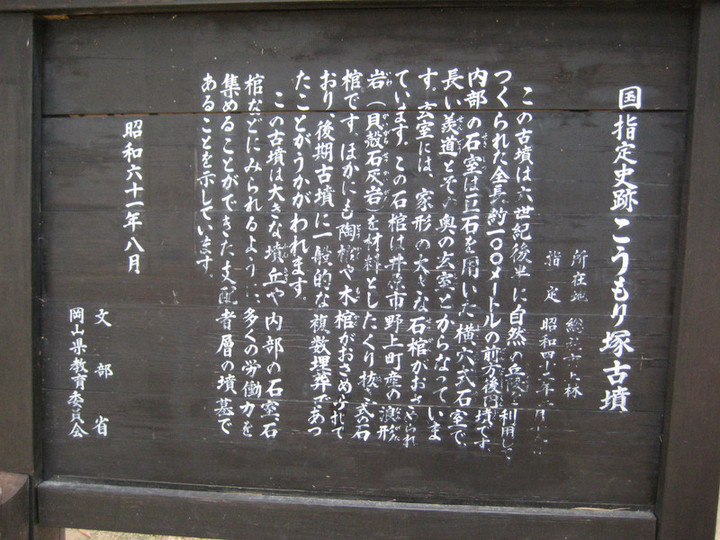 国指定史跡こうもり塚古墳
所在地 総社市上林
指定 昭和四十三年 月
この古墳は六世紀後半に自然の丘陵を利用して
つくられた全長約一〇〇メートルの前方後円墳です。
内部の石室は巨石を用いた横穴式石室で、
長い義道とその奥の玄室とからなっていま
す。玄室には、家形の大きな石棺がおさめられ
ています。この石棺は井原市野上町産の浪形
岩（貝殻石灰岩）を材料としたくり抜き式の石
棺です。ほかにも陶棺や木棺がおさめられて
おり、後期古墳に一般的な複数埋葬であっ
たことがうかがわれます。
この古墳は大きな墳丘や内部の石室、石
棺などにみられるように、多くの労働力を
集めることができた支配者層の墳墓で
あることを示しています。
昭和六十一年八月
文部省
岡山県教育委員会